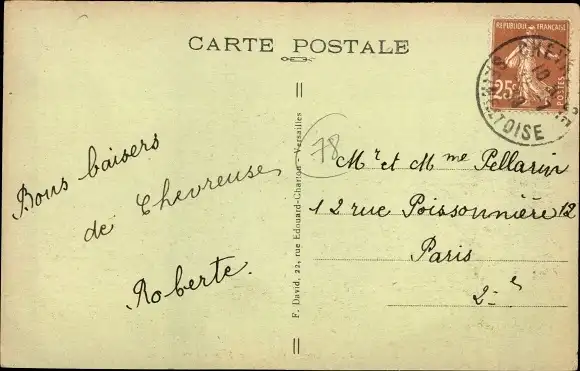 CARTE POSTALE
REPUBLIQUE FRANÇAISE
25c
POSTES
OISE
78
Bons baisers
de Chevreuse
Roberte.
F. David, 22, rue Edouard-Charton - Versailles
Mr et Mme Pellarin
12 rue Poissonnière 12
Paris
2-e